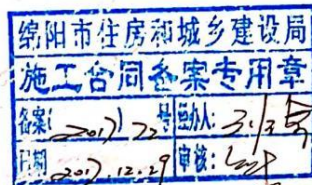 绵阳市住房和城乡建设局
施工合同备案专用章
备案(2017)72号 经办人:
日期 2017.12.29 审核: